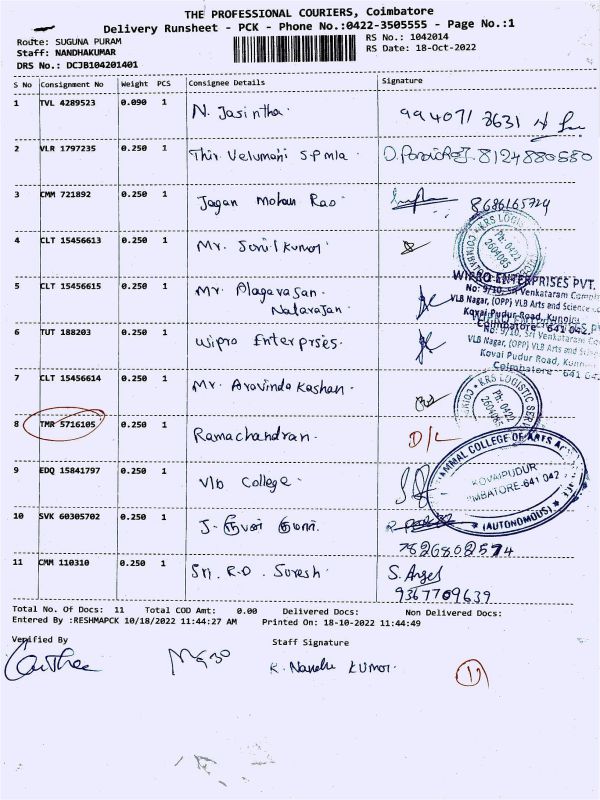 THE PROFESSIONAL COURIERS, Coimbatore
Delivery Runsheet - PCK - Phone No.:0422-3505555 - Page No.:1
Route: SUGUNA PURAM
Staff: NANDHAKUMAR
DRS No.: DCJB104201401
RS No.: 1042014
RS Date: 18-Oct-2022
S No Consignment No Weight PCS Consignee Details Signature
1 TVL 4289523 0.090 1 N. Jasintha. 994071 3631
2 VLR 1797235 0.250 1 Thir Velumani S P mla 8124880580
3 CMM 721892 0.250 1 Jagan Mohan Rao 8686165724
4 CLT 15456613 0.250 1 Mr. Sunil kumar
KRS LOGISTIC
Ph: 0422
2604085
5 CLT 15456615 0.250 1 Mr Alagarasan.
Natarajan
WIPRO ENTERPRISES PVT.
No: 9/10, Sri Venkataram
VLB Nagar, (OPP) VLB Arts and Science
Kovai Pudur Road,
Coimbatore 641 042
6 TUT 188203 0.250 1 Wipro Enterprises.
9/10, Sri Venkataram
VLB Nagar, (OPP) VLB Arts and
Kovai Pudur Road,
Coimbatore 641
7 CLT 15456614 0.250 1 Mr. Aravinda kashan.
KRS LOGISTIC
Ph: 0422
2604085
8 TMR 5716105 0.250 1 Ramachandran. D/L
9 EDQ 15841797 0.250 1 Vlb College.
COLLEGE OF ARTS
KOVAIPUDUR
COIMBATORE-641 042
(AUTONOMOUS)
10 SVK 60305702 0.250 1 J. 7826802574
11 CMM 110310 0.250 1 Sri. R.D. Suresh. S. Angel
9367709639
Total No. Of Docs: 11 Total COD Amt: 0.00 Delivered Docs: Non Delivered Docs:
Entered By :RESHMAPCK 10/18/2022 11:44:27 AM Printed On: 18-10-2022 11:44:49
Verified By Staff Signature
K. Nandha KUMAR.
11